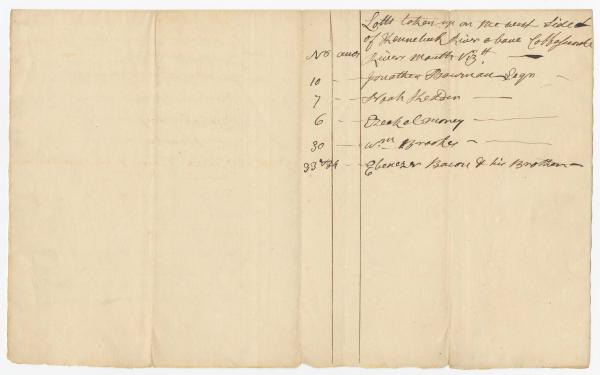 Lotts taken up on the west Side
of Kennebeck River above Cobbasconte
No Rivers Mouth Viz
10 Jonathan Bowman Esqr
7 Noah
6 Ezeekel
30 Wm Brookes
33 34 Ebenezer Bacon & his Brother